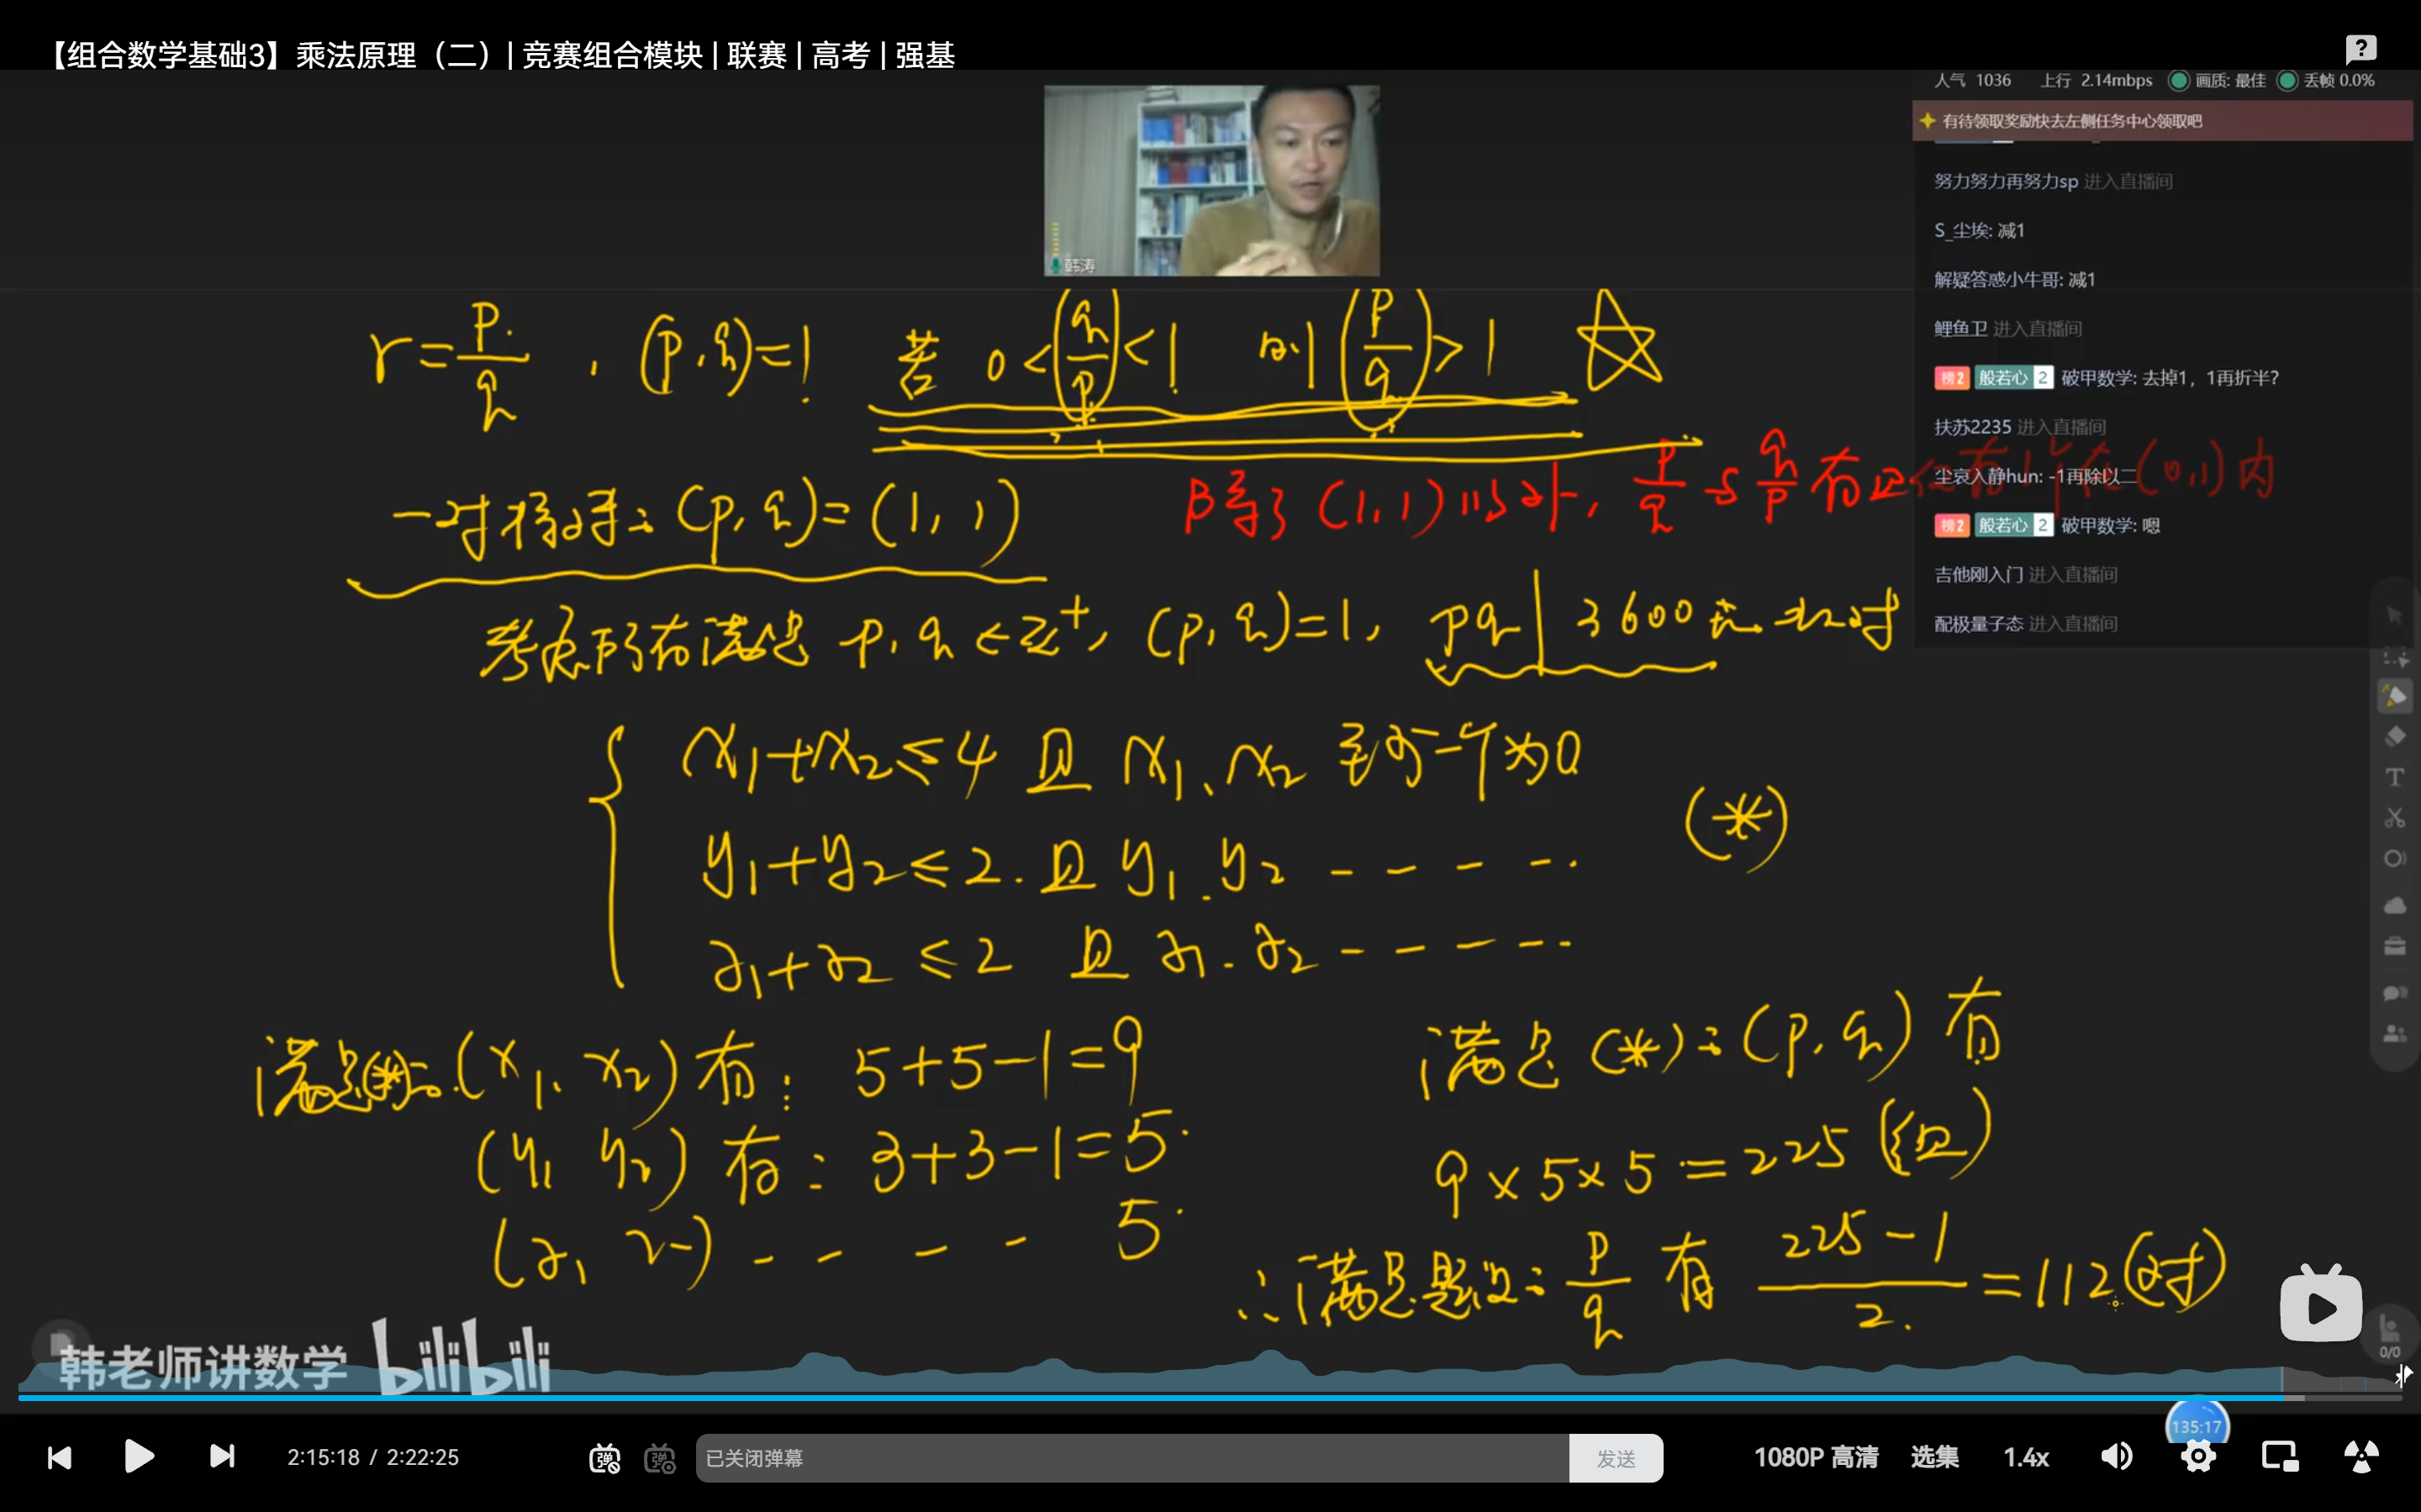 【组合数学基础3】乘法原理（二）| 竞赛组合模块 | 联赛 | 高考 | 强基
人气 1036 上行 2.14mbps 画质: 最佳 丢帧 0.0%
有待领取奖励快去左侧任务中心领取吧
努力努力再努力sp 进入直播间
S_尘埃: 减1
解疑答惑小牛哥: 减1
鲤鱼卫 进入直播间
榜2 般若心 2 破甲数学: 去掉1，1再折半?
扶苏2235 进入直播间
尘哀入静hun: -1再除以二
榜2 般若心 2 破甲数学: 嗯
吉他刚入门 进入直播间
配极量子态 进入直播间
韩涛
r=p/q , (p,q)=1 若 0<(q/p)<1 则 (p/q)>1 ☆
一对特殊: (p,q)=(1,1)
除了(1,1)以外, p/q 与 q/p 有且仅有1个在(0,1)内
考虑所有满足 p,q∈Z⁺, (p,q)=1, pq|3600 数对
{ x₁+x₂≤4 且 x₁、x₂ 至少一个为0
y₁+y₂≤2. 且 y₁.y₂ - - - - -.
z₁+z₂≤2 且 z₁.z₂ - - - - -
(*)
满足(*)的(x₁、x₂)有: 5+5-1=9
(y₁ y₂)有: 3+3-1=5.
(z₁ z₂) - - - - 5.
满足(*)的(p,q)有
9×5×5=225(组)
∴满足题设的 p/q 有 (225-1)/2.=112(对)
韩老师讲数学 bilibili
0/0
135:17
2:15:18 / 2:22:25
弹
弹
已关闭弹幕
发送
1080P 高清
选集
1.4x